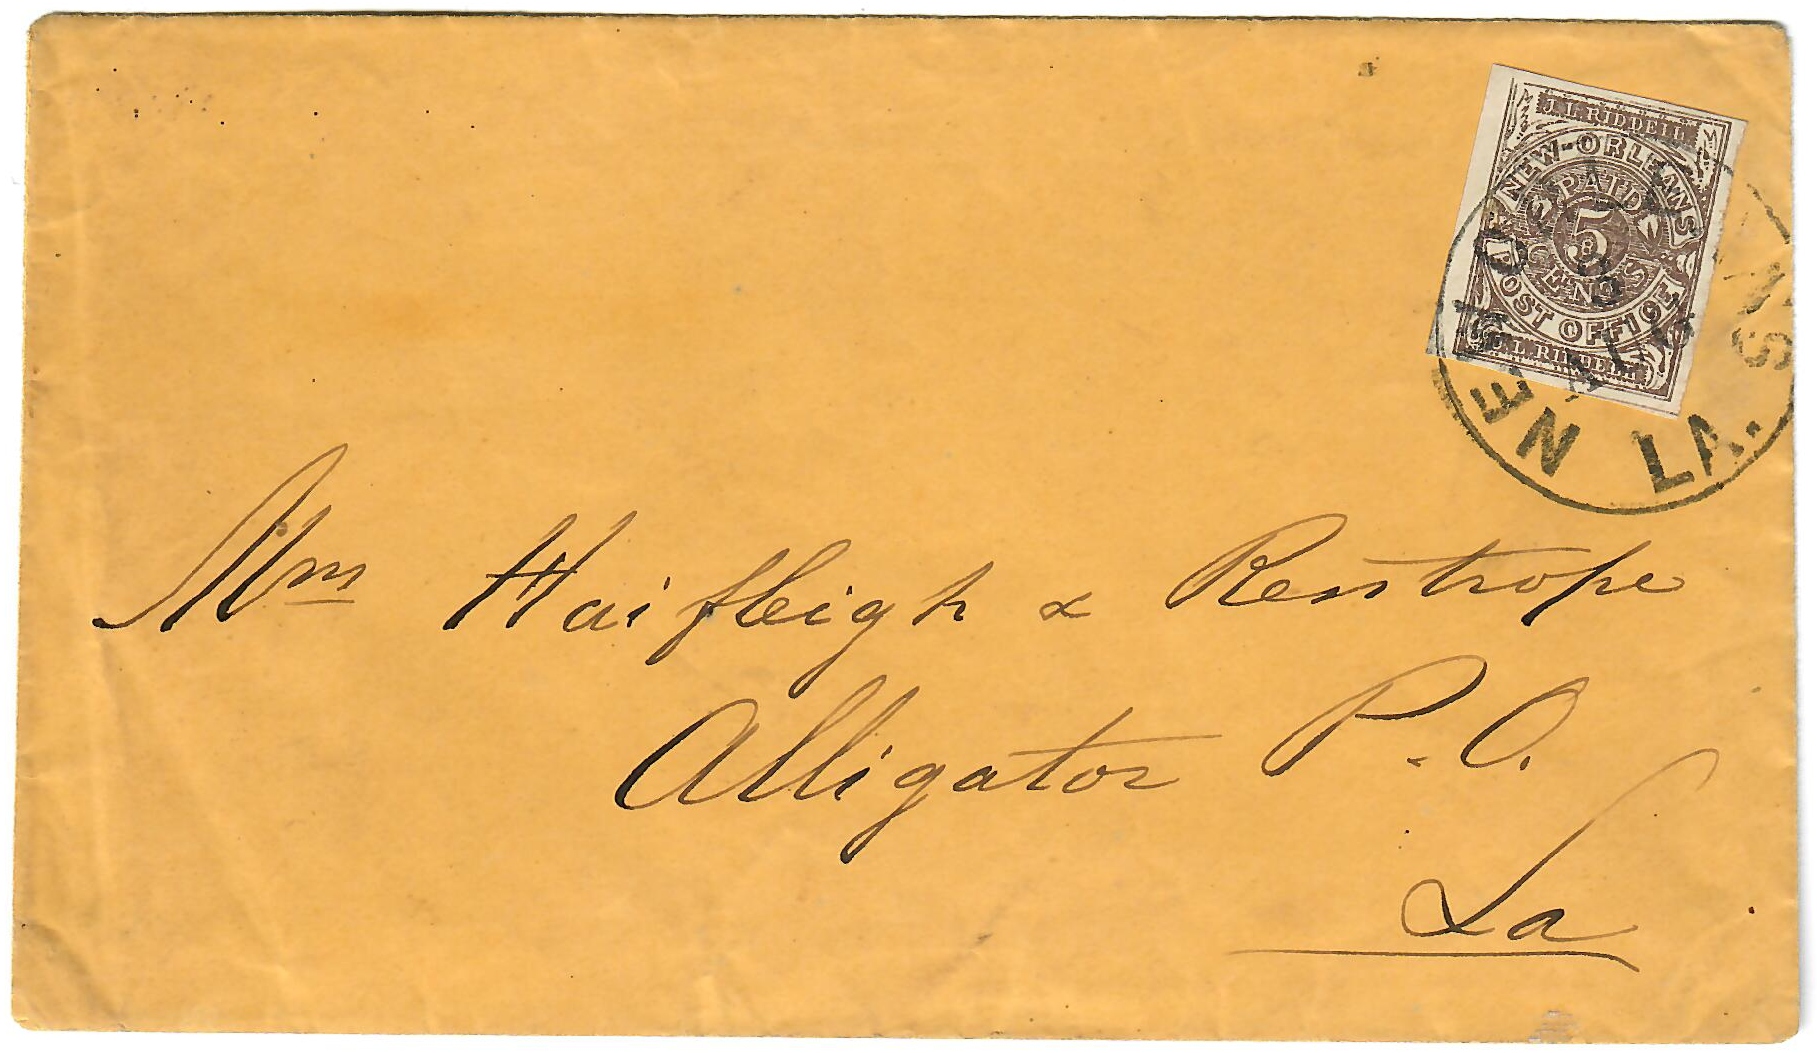 J.L.RIDDELL
NEW-ORLEANS
PAID
5
CENTS
POST OFFICE
J.L.RIDDELL
NEW ORLEANS
LA.
Haifleigh &
Alligator P.O.
La